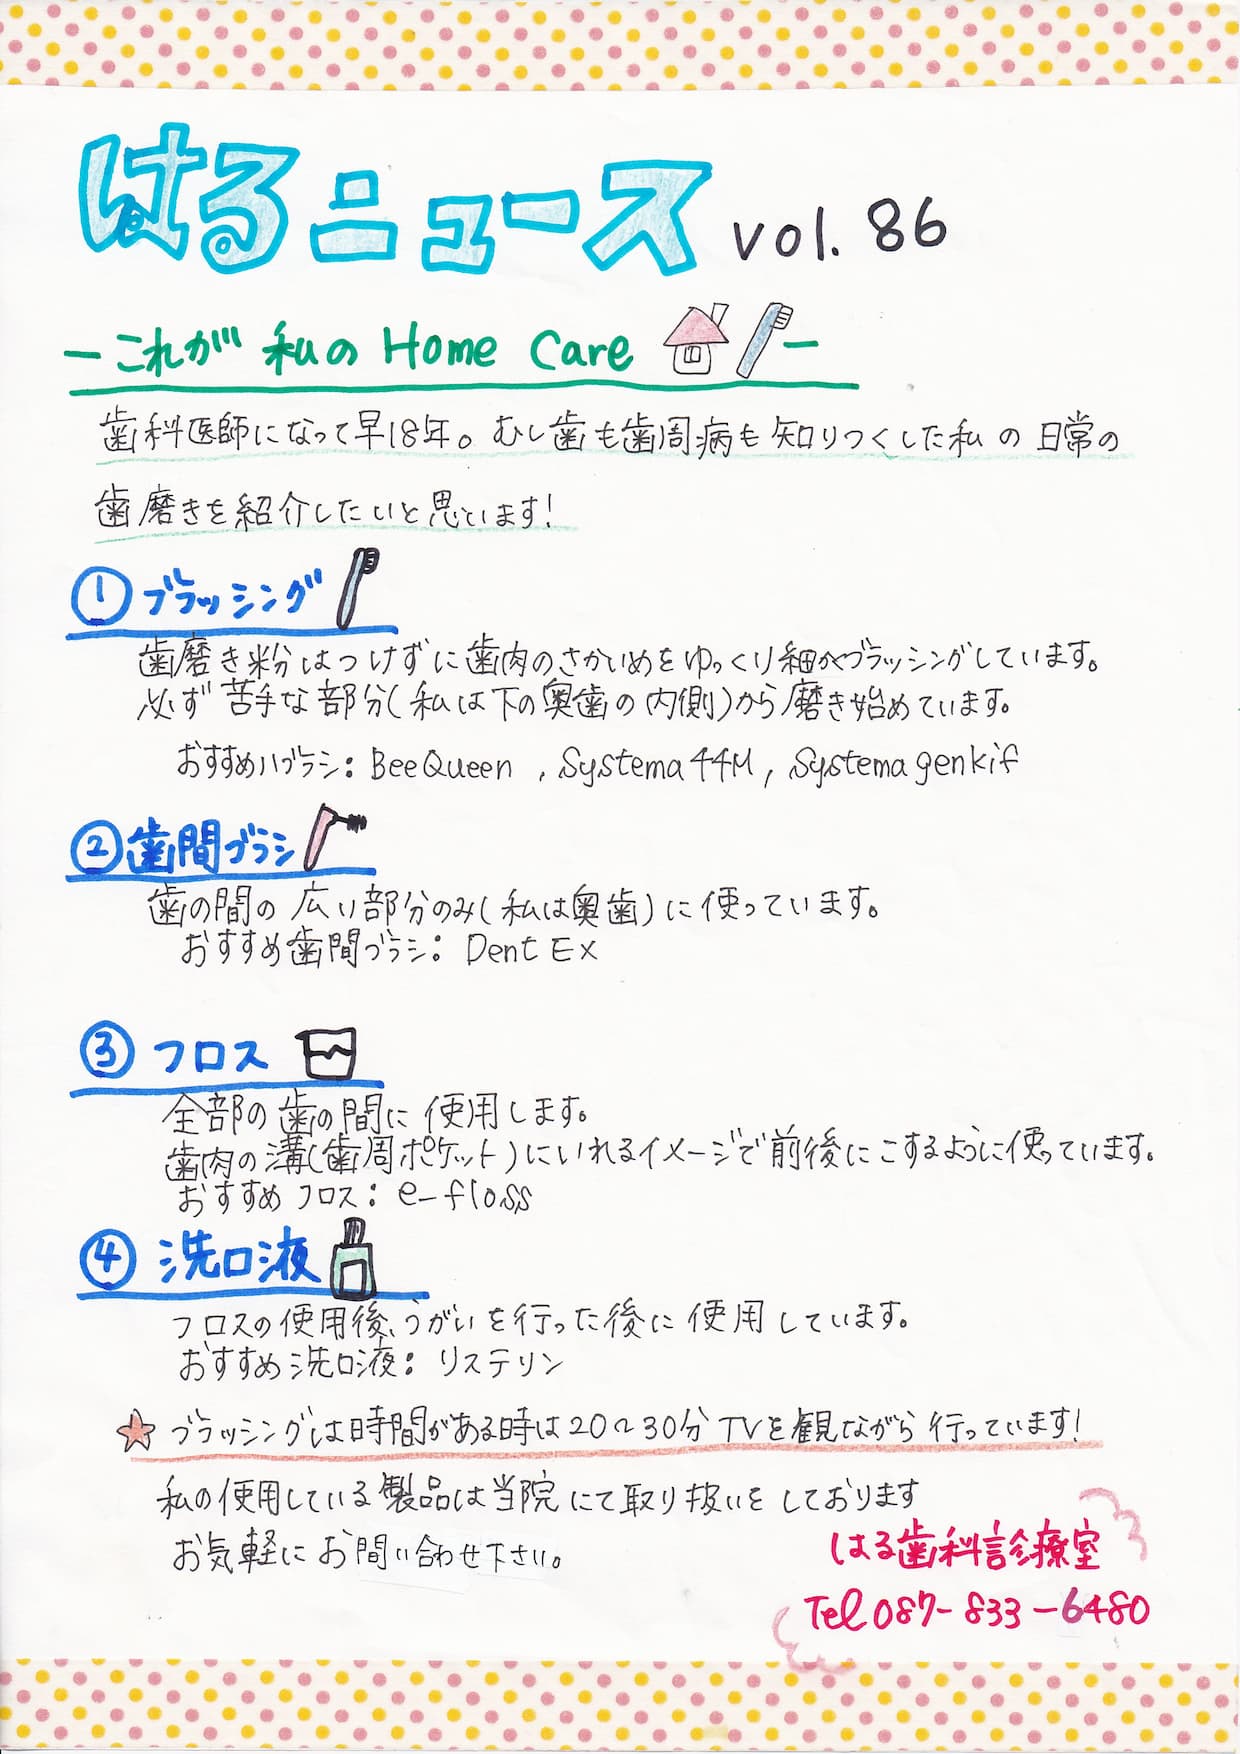 はるニュース vol. 86
ーこれが 私の Home Careー
歯科医師になって早18年。むし歯も歯周病も知りつくした私の日常の
歯磨きを紹介したいと思といます！
① ブラッシング
歯磨き粉はつけずに歯肉のさかいめをゆっくり細かくブラッシングしています。
必ず苦手な部分(私は下の奥歯の内側)から磨き始めています。
おすすめハブラシ：BeeQueen , Systema44M, Systema genkif
②歯間ブラシ
歯の間の広い部分のみ(私は奥歯)に使っています。
おすすめ歯間ブラシ：Dent Ex
③ フロス
全部の歯の間に使用します。
歯肉の溝(歯周ポケット)にいれるイメージで前後にこするように使っています。
おすすめフロス：e-floss
④ 洗口液
フロスの使用後、うがいを行った後に使用しています。
おすすめ洗口液：リステリン
★ブラッシングは時間がある時は20〜30分TVを観ながら行っています！
私の使用している製品は当院にて取り扱いをしております
お気軽にお問い合わせ下さい。
はる歯科診療室
Tel 087-833-6480